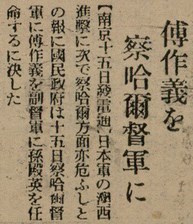 傅作義を
察哈爾督軍に
【南京十五日發電通】日本軍の灤西
進擊に次で察哈爾方面亦危ふしと
の報に國民政府は十五日察哈爾督
軍に傅作義を副督軍に孫殿英を任
命するに決した